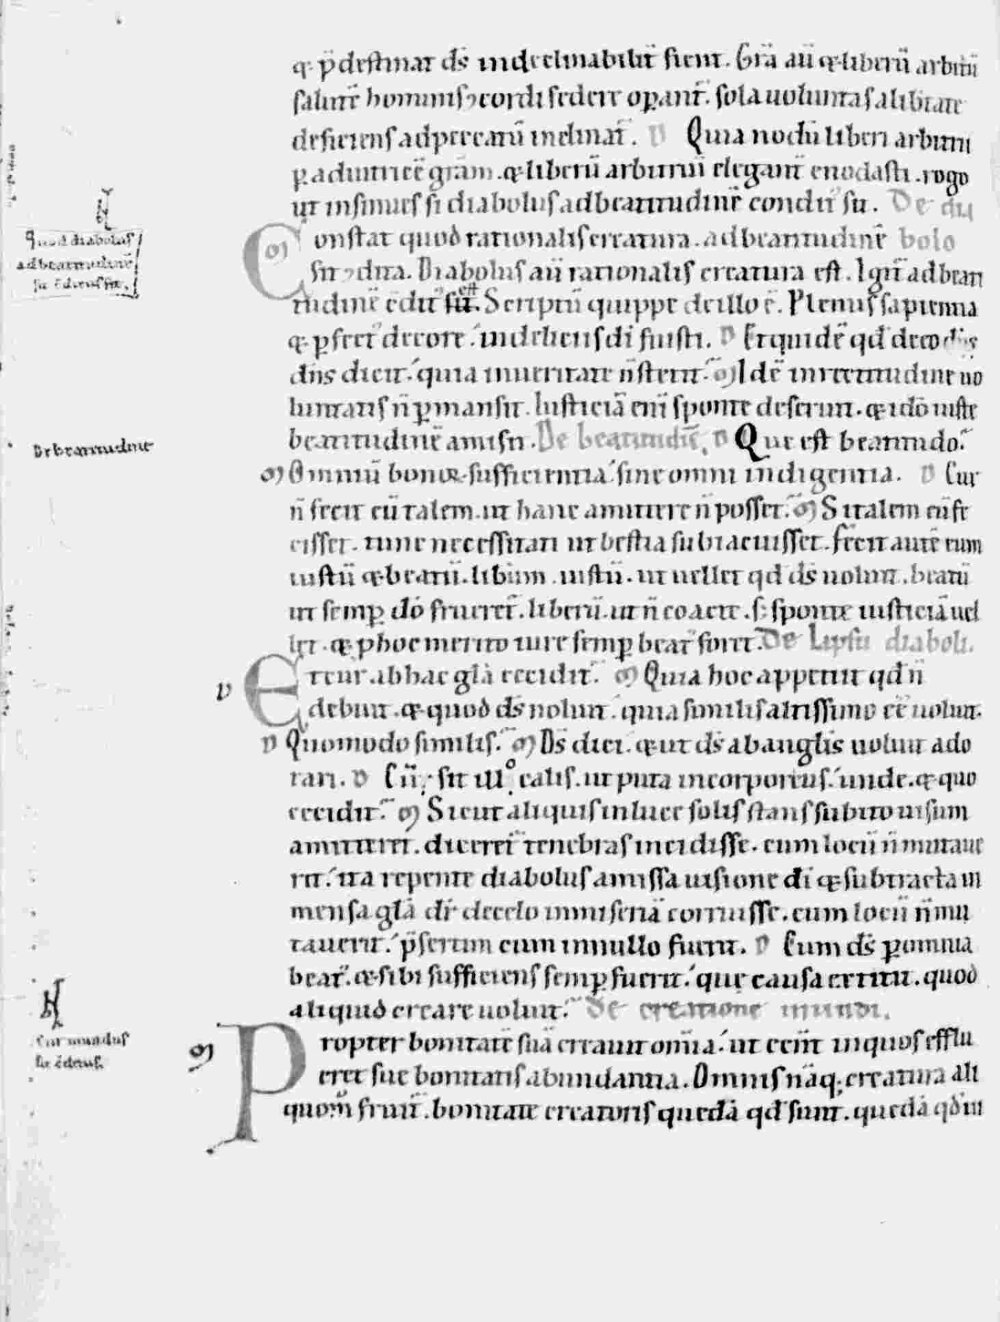 q; p̄destinat d̄s indeclinabilit̄ fient. Gr̄a aū & liberū arbit̄ū
salut̄e hominis ꝯcorditer operant̄. sola uoluntas a libertate
deficiens ad peccatū inclinat̄. D Quia nodū liberi arbitrii
ꝑ adiutricē gr̄am. & liberū arbitriū elegant̄ enodasti. rogo
ut insinues si diabolus ad beatitudinē condit̄ sit. De dia
Quod diabolus
ad beatitudinē
sit c̄ditus sit.
M Constat quod rationalis creatura. ad beatitudinē bolo
sit ꝯdita. Diabolus aū rationalis creatura est. Igit̄ ad beati
tudinē c̄dit̄ est. Scriptū quippe de illo ē. Plenus sapientia
& ꝑfect̄ decore. in deliciis di fuisti. D Et quidē qd̄ de eo
dn̄s dicit. quia in ueritate n̄ stetit. M Idē in rectitudine uo
luntatis n̄ ꝑmansit. Iusticiā eni sponte deseruit. & ido iuste
beatitudinē amisit. De beatitudiē. D Que est beatitudo.
De beatitudine
M Omniū bonoꝝ sufficientia. sine omni indigentia. D Cur
n̄ fecit eū talem. ut hanc amittere n̄ posset. M Si talem eū fe
cisset. tunc necessitati ut bestia subiacuisset. fecit autē eum
iustū & beatū. liberum. iustū. ut uellet qd̄ d̄s uoluit. beatū
ut semꝑ d̄o frueret̄. liberū. ut n̄ coacte. s; sponte iusticiā uel
let. & ꝑ hoc merito iure semꝑ beat̄ foret. De lapsu diaboli.
D Et cur ab hac gl̄a cecidit. M Quia hoc appetiit qd̄ n̄
debuit. & quod d̄s noluit. quia similis altissimo eē uoluit.
D Quomodo similis. M D̄s dici. & ut d̄s ab angl̄is uoluit ado
rari. D Cū sit illoc̉alis. ut puta incorporeus. unde. & quo
cecidit. M Sicut aliquis in luce solis stans subito uisum
amitteret. diceret̄ tenebras incidisse. cum locū n̄ mutaue
rit. ita repente diabolus amissa uisione di & subtracta in
mensa gl̄a dr̄ de celo in miseriā corruisse. cum locū n̄ mu
tauerit. p̄sertim cum in nullo fuerit. D Cum d̄s ꝑ omnia
beat̄. & sibi sufficiens semꝑ fuerit. que causa extitit. quod
aliquid creare uoluit. De creatione mundi.
Cur mundus
sit c̄ditus.
M Propter bonitatē suā creauit om̄ia. ut eēnt in quos efflu
eret sue bonitatis abundantia. Omnis nāq; creatura ali
quom̄ fruit̄. bonitate creatoris quedā qd̄ sunt. quedā qd̄ ui